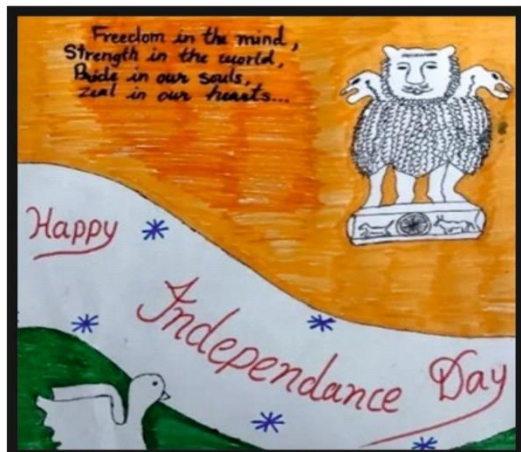 Freedom in the mind,
Strength in the world,
Pride in our souls,
Zeal in our hearts...
Happy
Independance Day